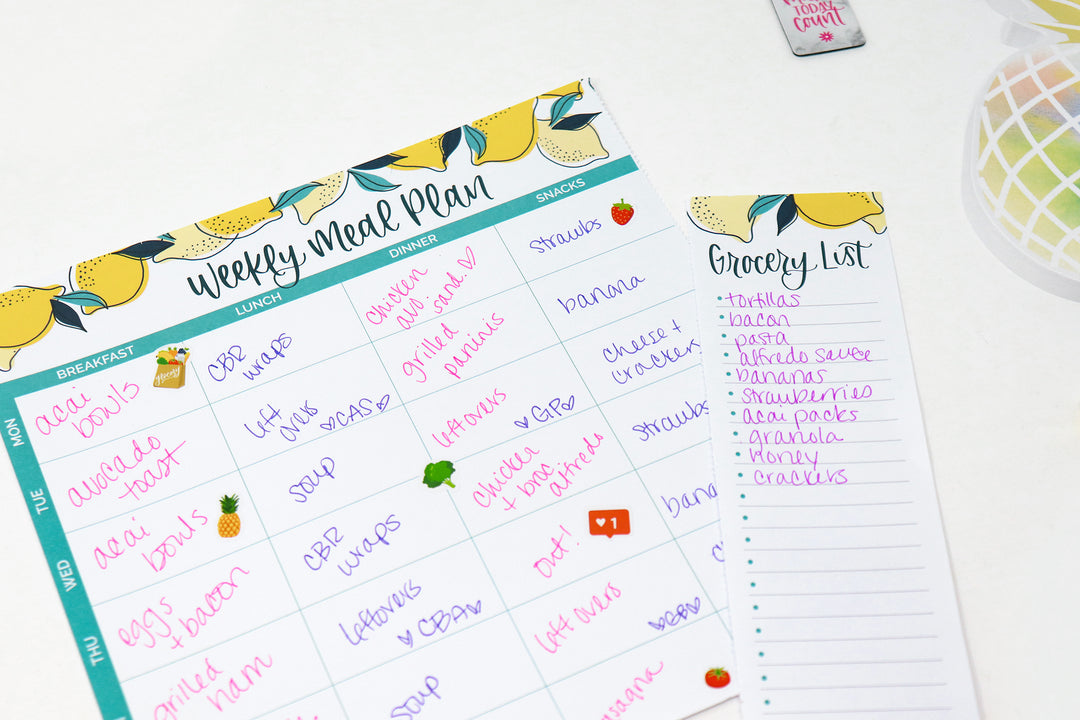 TODAY
count
Weekly Meal Plan
BREAKFAST
LUNCH
DINNER
SNACKS
MON
acai
bowls
grocery
CBR
wraps
chicken
avo. sand.
strawbs
TUE
avocado
toast
left
overs
♡CAS♡
grilled
paninis
banana
WED
acai
bowls
soup
leftovers
♡GP♡
cheese +
crackers
THU
eggs
+ bacon
CBR
wraps
chicken
+ broc
alfredo
strawbs
grilled
ham
leftovers
♡CBA♡
out!
1
soup
left overs
Grocery List
tortillas
bacon
pasta
alfredo sauce
bananas
strawberries
acai packs
granola
honey
crackers